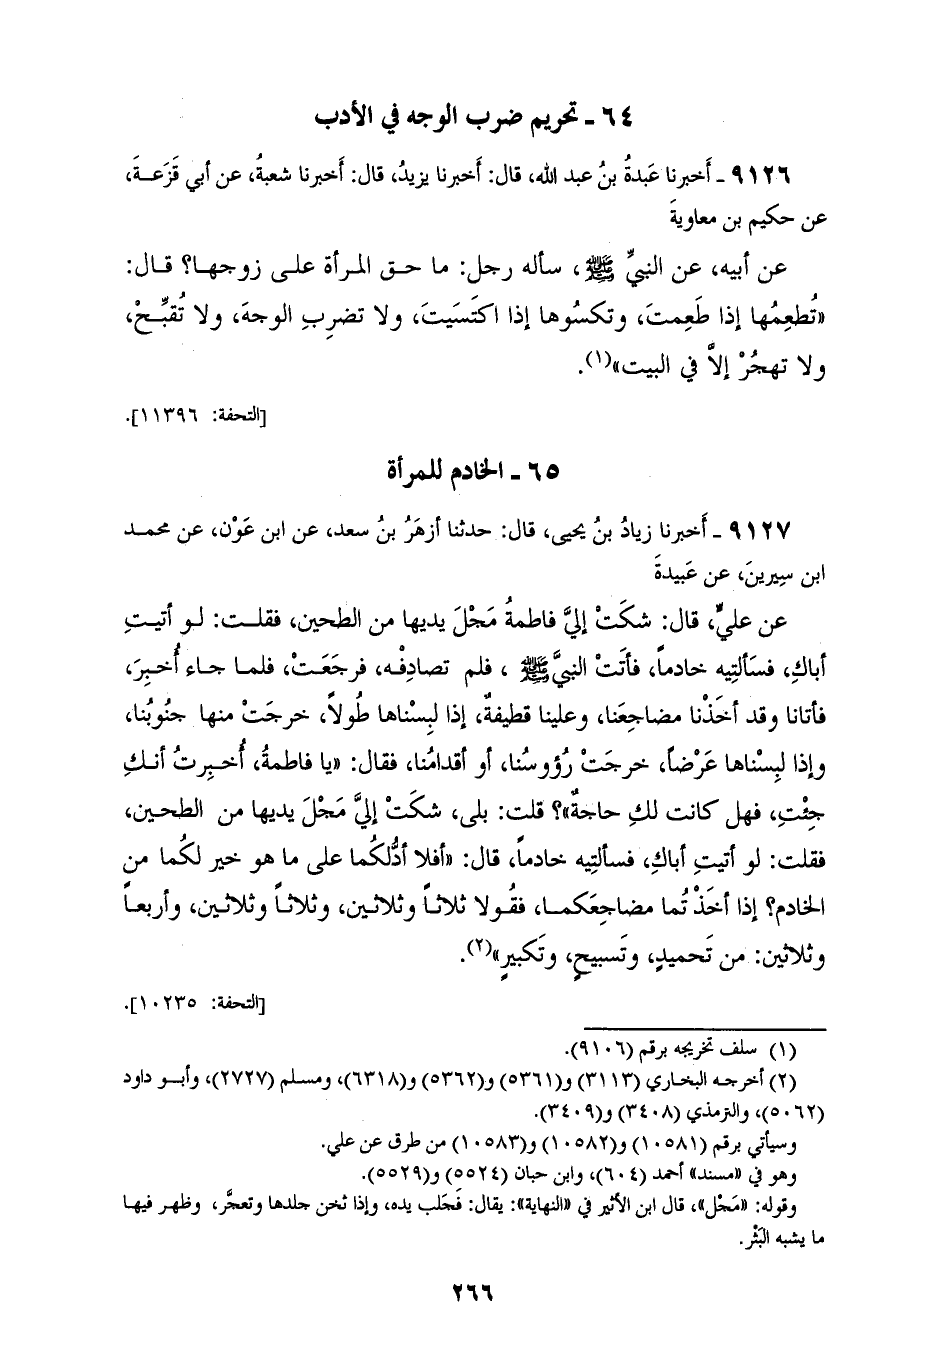 ٦٤ ـ تحريم ضرب الوجه في الأدب
٩١٢٦ ـ أَخبرنا عَبدةُ بنُ عبد الله، قال: أَخبرنا يزيدُ، قال: أَخبرنا شعبةُ، عن أبي قَزَعـةَ،
عن حكيم بن معاويةَ
عن أبيه، عن النبيِّ ﷺ، سأله رجل: ما حـق المـرأة علـى زوجهـا؟ قـال:
«تُطعِمُها إذا طَعِمتَ، وتكسُوها إذا اكتَسَيتَ، ولا تضرِبِ الوجهَ، ولا تُقبِّـحْ،
ولا تهجُرْ إلاَّ في البيت»(١).
[التحفة: ١١٣٩٦].
٦٥ ـ الخادم للمرأة
٩١٢٧ ـ أَخبرنا زيادُ بنُ يحيى، قال: حدثنا أزهَرُ بنُ سعد، عن ابن عَوْن، عن محمـد
ابن سِيرينَ، عن عَبيدةَ
عن عليٍّ، قال: شكَتْ إليَّ فاطمةُ مَجْلَ يديها من الطحين، فقلـت: لـو أتيـتِ
أباكِ، فسَألتِيه خادماً، فأتَت النبيَّ ﷺ، فلم تصادِفْه، فرجَعَـتْ، فلمـا جـاء أُخـبِرَ،
فأتانا وقد أخَذْنا مضاجِعَنا، وعلينا قطيفةٌ، إذا لبِسْناها طُولاً، خرجَتْ منها جنُوبُنا،
وإذا لبِسْناها عَرْضاً، خرجَتْ رُؤوسُنا، أو أقدامُنا، فقال: «يا فاطمةُ، أُخـبِرتُ أنـكِ
جِئْتِ، فهل كانت لكِ حاجةٌ»؟ قلت: بلى، شكَتْ إليَّ مَجْلَ يديها من الطحين،
فقلت: لو أتيتِ أباكِ، فسألتِيه خادماً، قال: «أفلا أدُلُّكُما على ما هو خير لكُما من
الخادم؟ إذا أخَذْتُما مضاجعَكمـا، فقُـولا ثلاثـاً وثلاثـين، وثلاثـاً وثلاثـين، وأربعـاً
وثلاثين: من تَحميدٍ، وتَسبيحٍ، وتَكبيرٍ»(٢).
[التحفة: ١٠٢٣٥].
(١) سلف تخريجه برقم (٩١٠٦).
(٢) أخرجـه البخـاري (٣١١٣) و(٥٣٦١) و(٥٣٦٢) و(٦٣١٨)، ومسـلم (٢٧٢٧)، وأبـو داود
(٥٠٦٢)، والترمذي (٣٤٠٨) و(٣٤٠٩).
وسيأتي برقم (١٠٥٨١) و(١٠٥٨٢) و(١٠٥٨٣) من طرق عن علي.
وهو في «مسند» أحمد (٦٠٤)، وابن حبان (٥٥٢٤) و(٥٥٢٩).
وقوله: «مَجْل»، قال ابن الأثير في «النهاية»: يقال: مَجَلت يده، وإذا ثخن جلدها وتعجَّر، وظهـر فيهـا
ما يشبه البَثْر.
٢٦٦